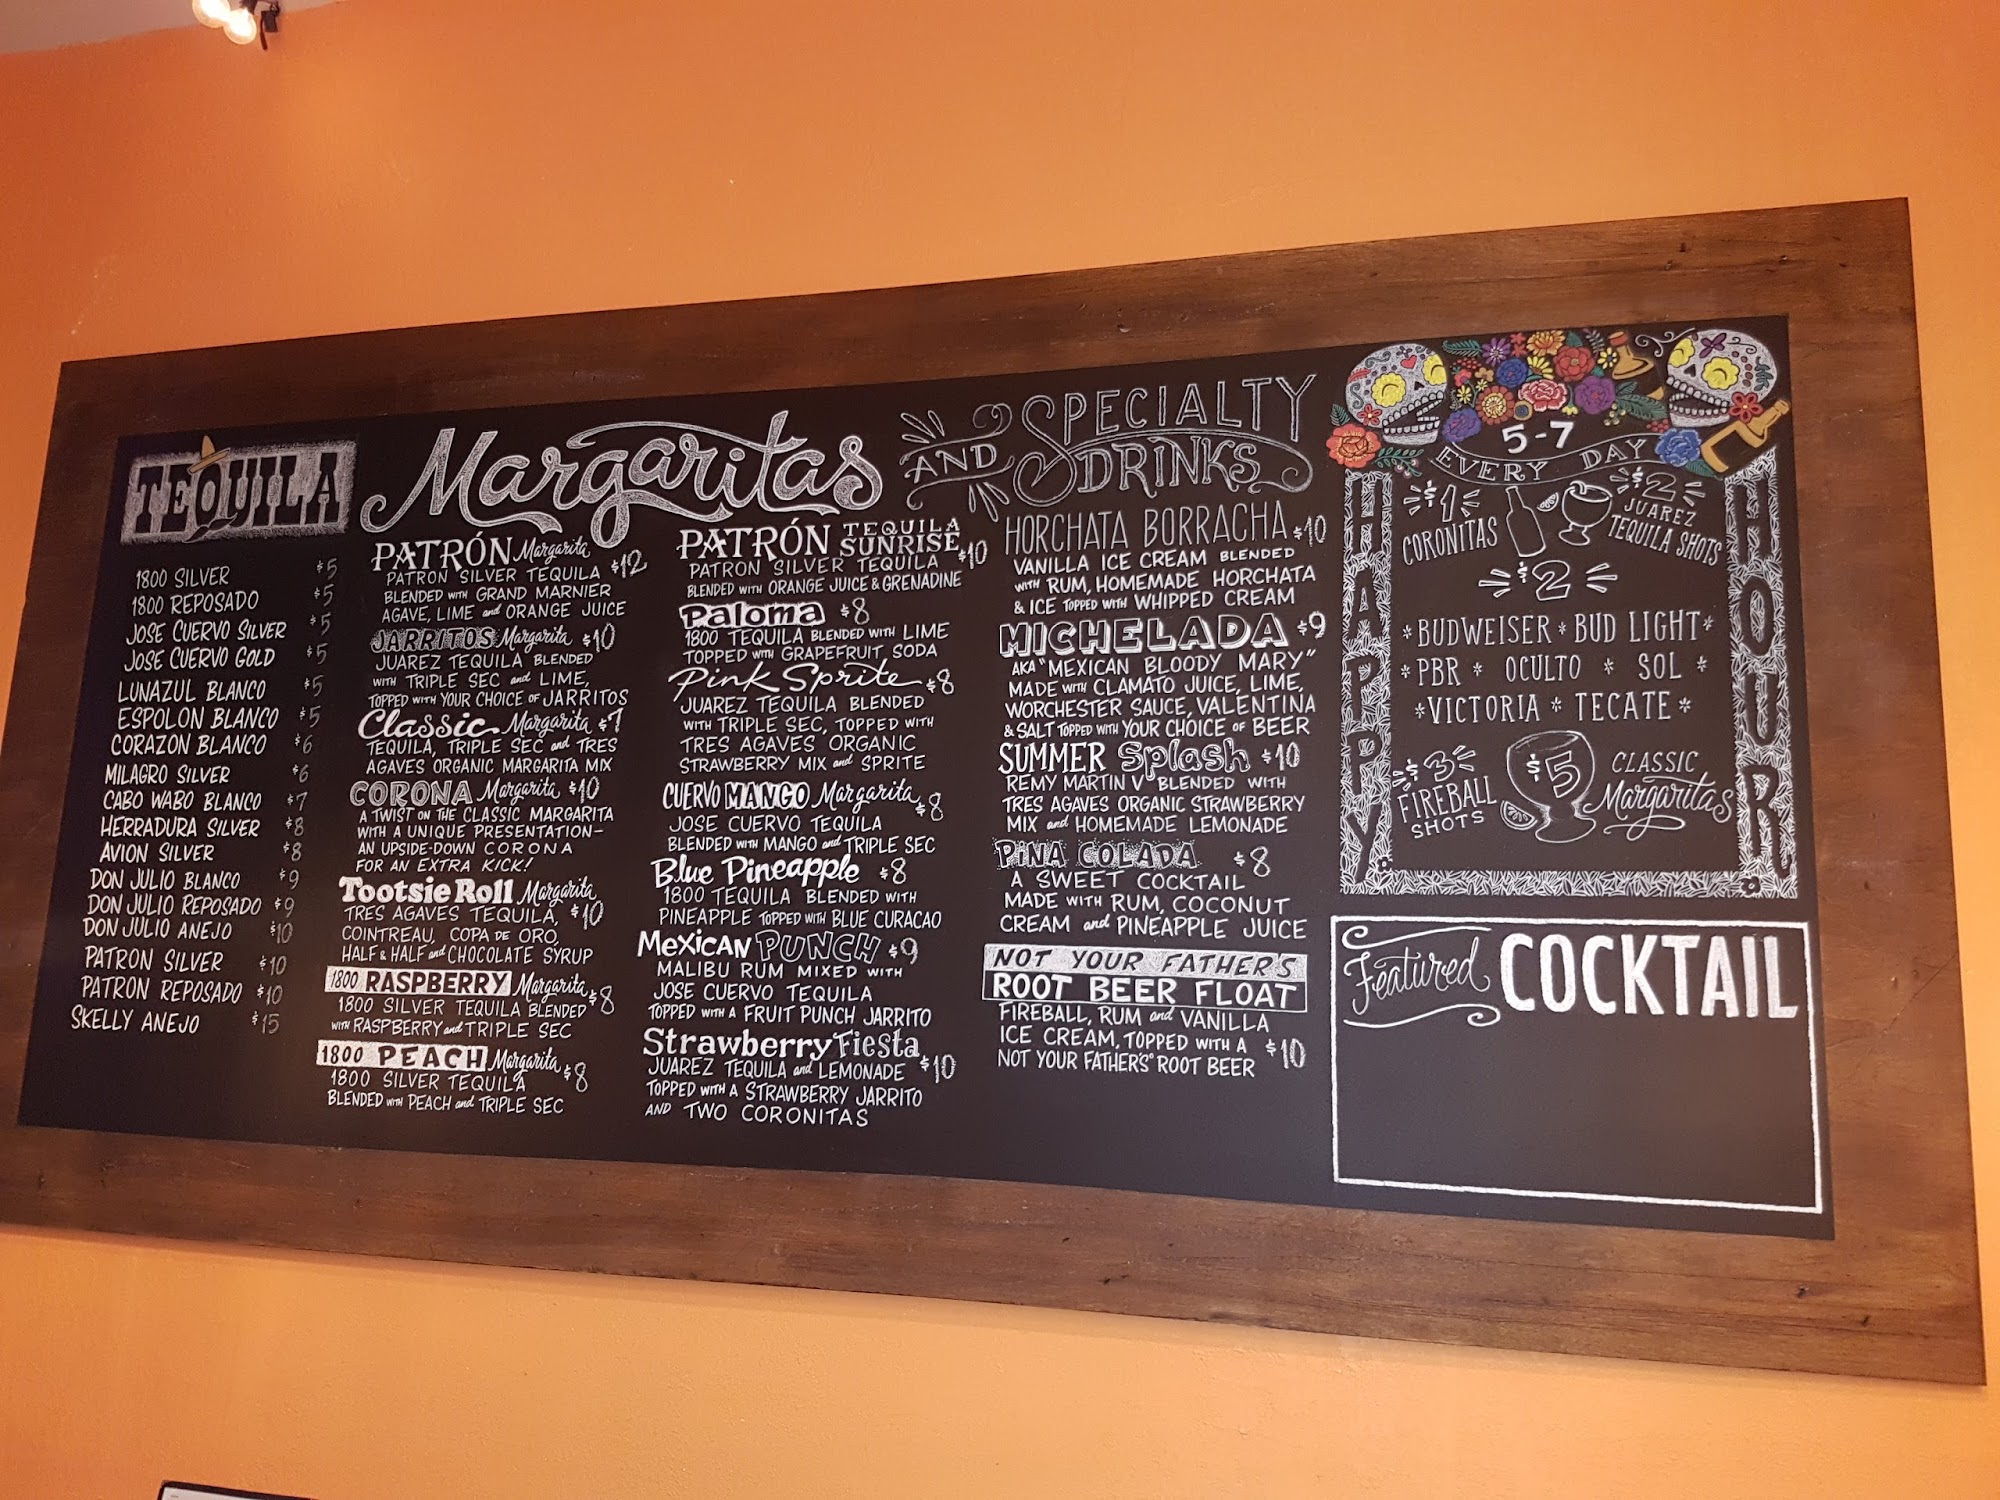 TEQUILA
1800 SILVER $5
1800 REPOSADO $5
JOSE CUERVO SILVER $5
JOSE CUERVO GOLD $5
LUNAZUL BLANCO $5
ESPOLON BLANCO $5
CORAZON BLANCO $6
MILAGRO SILVER $6
CABO WABO BLANCO $7
HERRADURA SILVER $8
AVION SILVER $8
DON JULIO BLANCO $9
DON JULIO REPOSADO $9
DON JULIO ANEJO $10
PATRON SILVER $10
PATRON REPOSADO $10
SKELLY ANEJO $15
Margaritas AND SPECIALTY DRINKS
PATRÓN Margarita $12
PATRON SILVER TEQUILA
BLENDED WITH GRAND MARNIER
AGAVE, LIME and ORANGE JUICE
JARRITOS Margarita $10
JUAREZ TEQUILA BLENDED
WITH TRIPLE SEC and LIME,
TOPPED WITH YOUR CHOICE OF JARRITOS
Classic Margarita $7
TEQUILA, TRIPLE SEC and TRES
AGAVES ORGANIC MARGARITA MIX
CORONA Margarita $10
A TWIST ON THE CLASSIC MARGARITA
WITH A UNIQUE PRESENTATION-
AN UPSIDE-DOWN CORONA
FOR AN EXTRA KICK!
Tootsie Roll Margarita $10
TRES AGAVES TEQUILA,
COINTREAU, COPA DE ORO,
HALF & HALF and CHOCOLATE SYRUP
1800 RASPBERRY Margarita $8
1800 SILVER TEQUILA BLENDED
WITH RASPBERRY and TRIPLE SEC
1800 PEACH Margarita $8
1800 SILVER TEQUILA
BLENDED WITH PEACH and TRIPLE SEC
PATRÓN TEQUILA SUNRISE $10
PATRON SILVER TEQUILA
BLENDED WITH ORANGE JUICE & GRENADINE
Paloma $8
1800 TEQUILA BLENDED WITH LIME
TOPPED WITH GRAPEFRUIT SODA
Pink Sprite $8
JUAREZ TEQUILA BLENDED
WITH TRIPLE SEC, TOPPED WITH
TRES AGAVES ORGANIC
STRAWBERRY MIX and SPRITE
CUERVO MANGO Margarita $8
JOSE CUERVO TEQUILA
BLENDED WITH MANGO and TRIPLE SEC
Blue Pineapple $8
1800 TEQUILA BLENDED WITH
PINEAPPLE TOPPED WITH BLUE CURACAO
MEXICAN PUNCH $9
MALIBU RUM MIXED WITH
JOSE CUERVO TEQUILA
TOPPED WITH A FRUIT PUNCH JARRITO
Strawberry Fiesta $10
JUAREZ TEQUILA and LEMONADE
TOPPED WITH A STRAWBERRY JARRITO
AND TWO CORONITAS
HORCHATA BORRACHA $10
VANILLA ICE CREAM BLENDED
WITH RUM, HOMEMADE HORCHATA
& ICE TOPPED WITH WHIPPED CREAM
MICHELADA $9
AKA "MEXICAN BLOODY MARY"
MADE WITH CLAMATO JUICE, LIME,
WORCHESTER SAUCE, VALENTINA
& SALT TOPPED WITH YOUR CHOICE OF BEER
SUMMER Splash $10
REMY MARTIN V BLENDED WITH
TRES AGAVES ORGANIC STRAWBERRY
MIX and HOMEMADE LEMONADE
PiNA COLADA $8
A SWEET COCKTAIL
MADE WITH RUM, COCONUT
CREAM and PINEAPPLE JUICE
NOT YOUR FATHER'S
ROOT BEER FLOAT
FIREBALL, RUM and VANILLA
ICE CREAM, TOPPED WITH A $10
NOT YOUR FATHER'S® ROOT BEER
5-7
EVERY DAY
HAPPY
HOUR
$1
CORONITAS
$2
JUAREZ
TEQUILA SHOTS
$2
*BUDWEISER * BUD LIGHT*
*PBR * OCULTO * SOL *
*VICTORIA * TECATE *
$3
FIREBALL
SHOTS
$5
CLASSIC
Margaritas
Featured COCKTAIL